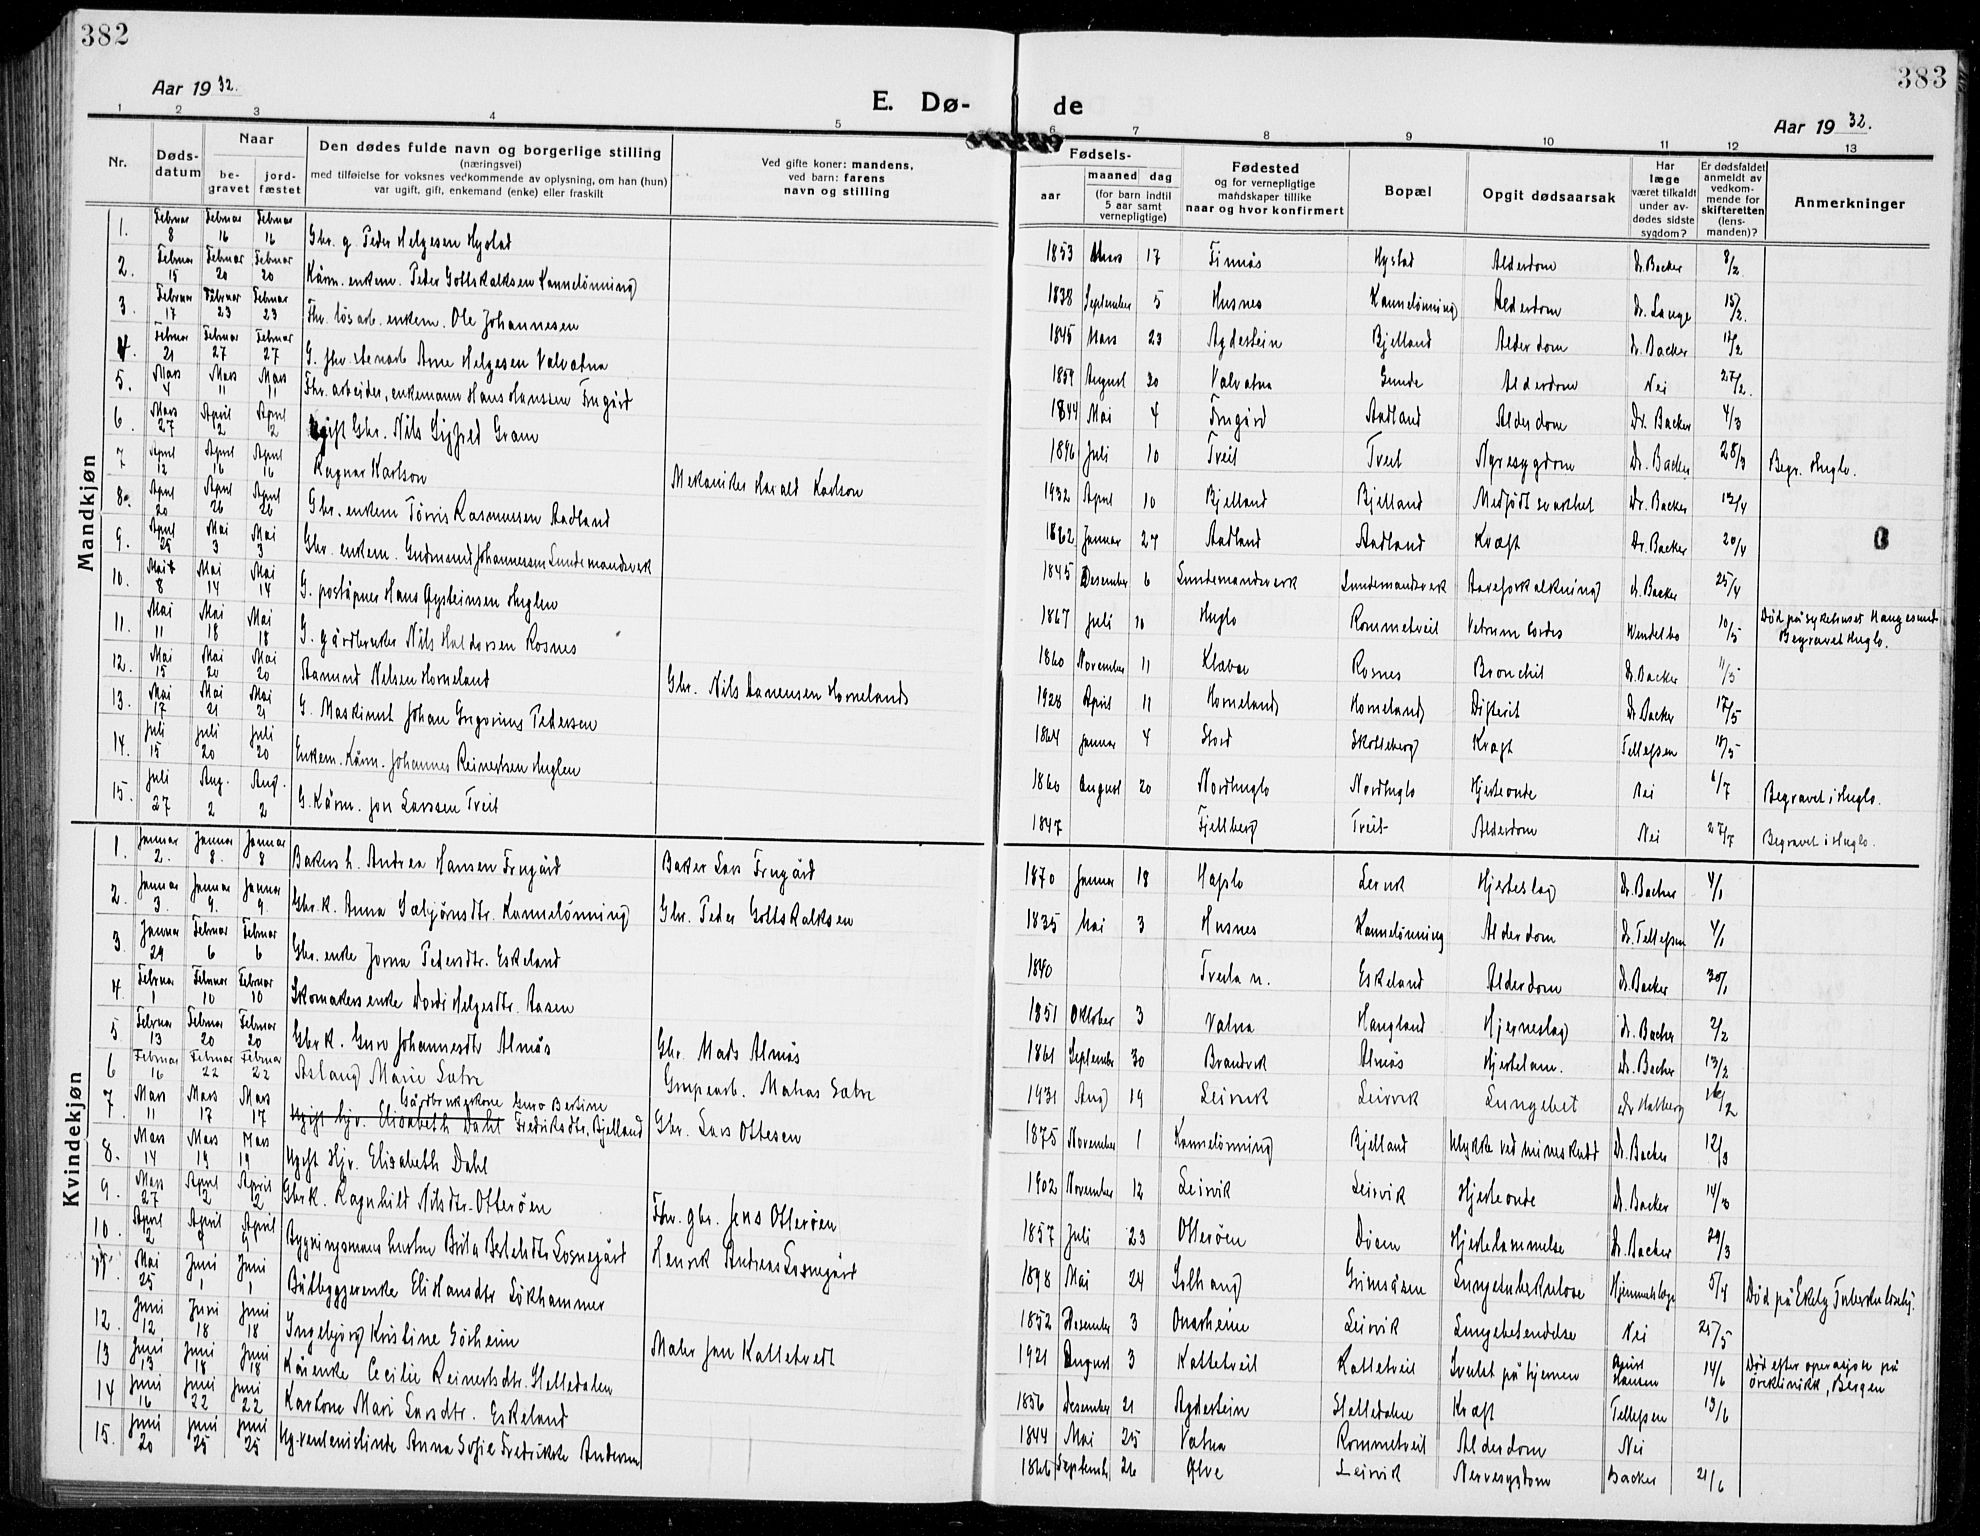 382
383
Aar 1932.
E. Dø-
de
Aar 1932.
1 2 3 4 5 6 7 8 9 10 11 12 13
Nr.
Døds-
datum
Naar
be-
gravet
jord-
fæstet
Den dødes fulde navn og borgerlige stilling
(næringsvei)
med tilføielse for voksnes vedkommende av oplysning, om han (hun)
var ugift, gift, enkemand (enke) eller fraskilt
Ved gifte koner: mandens,
ved barn: farens
navn og stilling
Fødsels-
aar
maaned dag
(for barn indtil
5 aar samt
vernepligtige)
Fødested
og for vernepligtige
mandskaper tillike
naar og hvor konfirmert
Bopæl
Opgit dødsaarsak
Har
læge
været tilkaldt
under av-
dødes sidste
sygdom?
Er dødsfaldet
anmeldt av
vedkom-
mende for
skifteretten
(lens-
manden)?
Anmerkninger
Mandkjøn
1. Februar 8 Februar 16 Februar 16 Gbr. g. Peder Helgesen Hystad 1853 Mars 17 Finnås Hystad Alderdom Dr. Backer 8/2
2. Februar 15 Februar 20 Februar 20 Kårm. enkem. Peder Gottskalksen Kannelønning 1838 September 5 Husnes Kannelønning Alderdom Dr. Lange 15/2.
3. Februar 17 Februar 23 Februar 23 Fhv. løsarb. enkem. Ole Johannesen 1845 Mars 23 Agdestein Bjelland Alderdom Dr. Backer
4. Februar 21 Februar 27 Februar 27 G. fhv. stenarb. Arne Helgesen Valvatna 1859 August 20 Valvatna Alderdom Nei 27/2.
5. Mars 4 Mars 11 Mars 11 Fhv. arbeider, enkemann Hans Hanssen Frugård 1844 Mai 4 Frugård Aadland Alderdom Dr. Backer 4/3
6. Mars 27 April 2 April 2 Ugift Gbr. Nils Sigfred Gram 1896 Juli 10 Tveit Tveit Nyresygdom Dr. Backer 28/3 Begr. Huglo.
7 April 12 April 16 April 16 Ragnar Karlson Mekaniker Harald Karlson 1932 April 10 Bjelland Bjelland Medfødt svakhet Dr. Backer 13/4
8. April 20 April 26 April 26 Gbr. enkem Tørris Rasmussen Aadland 1862 Januar 27 Aadland Aadland Kræft Dr. Backer 20/4
9. April 25 Mai 3 Mai 3 Gbr. enkem. Gudmund Johannessen Lundemandsverk 1845 Desember 6 Lundemandsverk Lundemandsverk Aareforkalkning Dr. Backer 25/4
10. Mai 8 Mai 14 Mai 14 G. poståpner Hans Øysteinsen Huglen 1867 Juli 10 Huglo Rommetveit Vetium cordis Wendelbo 10/5 Død på sykehuset Haugesund Begravet Huglo.
11. Mai 11 Mai 18 Mai 18 G. gårdbruker Nils Haldorsen Rosnes 1860 November 11 Rosnes Bronchit Dr. Backer 11/5
12. Mai 15 Mai 20 Mai 20 Aamund Nilsen Horneland Gbr. Nils Aanensen Horneland 1928 April 11 Horneland Horneland Difterit Dr. Backer 17/5
13. Mai 17 Mai 21 Mai 21 G. Maskinist Johan Gregorius Pedersen 1864 Januar 4 Stord Skotteberg Kræft Tellefsen 18/5
14. Juli 15 Juli 20 Juli 20 Enkem. Kårm. Johannes Reinertsen Huglen 1860 August 20 Nordhuglo Nordhuglo Hjerteonde Nei Begravet i Huglo.
15. Juli 27 Aug. 2 Aug. 2 G. Kårm. Jon Larssen Tveit 1847 Fjellberg Tveit Alderdom Nei 27/7 Begravet i Huglo.
Kvindekjøn
1. Januar 2. Januar 8. Januar 8 Bakers h. Andrea Hansen Frugård Baker Lars Frugård 1870 Januar 18 Hafslo Lervik Hjerteslag Dr. Backer 4/1
2. Januar 3. Januar 9. Januar 9. Gbr.k. Anna Sæbjørnsdtr. Kannelønning Gbr. Peder Gottskalksen 1835 Mai 3 Husnes Kannelønning Alderdom Dr. Tellefsen 4/1
3. Januar 29 Februar 6 Februar 6 Gbr. enke Jorna Pedersdtr. Eskeland 1840 Tveita n. Eskeland Alderdom Dr. Backer 30/1
4. Februar 1 Februar 10 Februar 10 Skomakers enke Dordi Helgesdtr. Aasen 1851 Oktober 3 Vatna Haugland Hjerneslag Dr. Backer 2/2
5 Februar 13 Februar 20 Februar 20 Gbrk. Guro Johannesdtr Almås Gbr. Mads Almås 1861 September 30 Brandvik Almås Hjertelam. Dr. Backer 13/2
6 Februar 16 Februar 22 Februar 22 Aslaug Marie Sætre Grubearb. Matias Sætre 1931 Aug 19 Leirvik Leirvik Lungebet 16/2
7. Mars 11 Mars 17 Mars 17 Ugift hjv. Elisabeth Dahl Gårdbrukerkone Guro Bertine Fredriksdtr. Bjelland Gbr. Lars Ottesen 1875 November 1 Kannelønning Bjelland Ulykke ved mineskudd Dr. Backer 12/3
8. Mars 14 Mars 19 Mars 19 Ugift Hjv. Elisabeth Dahl 1902 November 12 Leirvik Leirvik Hjerteonde Dr. Backer 14/3
9. Mars 27 April 2 April 2 Gbrk. Ragnhild Nilsdtr. Otterøen Fhv. gbr. Jens Otterøen 1857 Juli 23 Otterøen Døen Hjertelammelse Dr. Backer 29/3
10. April 2 April 9 April 9 Bygningsmans hustru Brita Bertelsdtr Losnegård Henrik Andreas Losnegård 1898 Mai 24 Solhaug Grimsåsen Lungetuberkulose 5/4 Død på Ekely Tuberkulosehj.
11. Mai 25 Juni 1 Juni 1 Båtbyggerenke Eli Hansdtr Løkhammer 1852 Desember 3 Onarheim Leirvik Lungebetendelse Nei 25/5
12. Juni 12 Juni 18 Juni 18 Ingebjørg Kristine Gørheim Maler Jon Kattetvedt 1921 August 3 Kattetveit Kattetveit Svulst på hjernen Hansen 14/6 Død efter operasjon på øreklinikk, Bergen
13 Juni 13 Juni 18 Juni 18 Kårenke Cecilie Reinertsdtr. Helledalen 1856 Desember 21 Agdestein Helledalen Kræft Tellefsen 13/6
14 Juni 16 Juni 22 Juni 22 Karkone Mari Larsdtr. Eskeland 1844 Mai 25 Vatna Rommetveit Alderdom Nei
15. Juni 20 Juni 25 Juni 25 Ug. rentenistinde Anna Sofie Fredrikke Andersen 1866 September 26 Ølve Leirvik Nervesygdom Backer 21/6